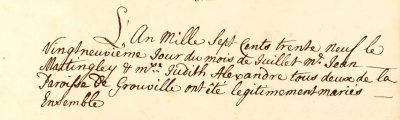 L'An Mille Sept Cents trente neuf le
Vingtneuvième Jour du mois de Juillet Mr. Jean
Mattingley & mrs. Judith Alexandre tous deux de la
Paroisse de Grouville ont été legitimement mariés
Ensemble